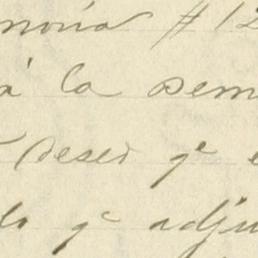 moria # 12
á la sem
deseo qe e
do qe adju